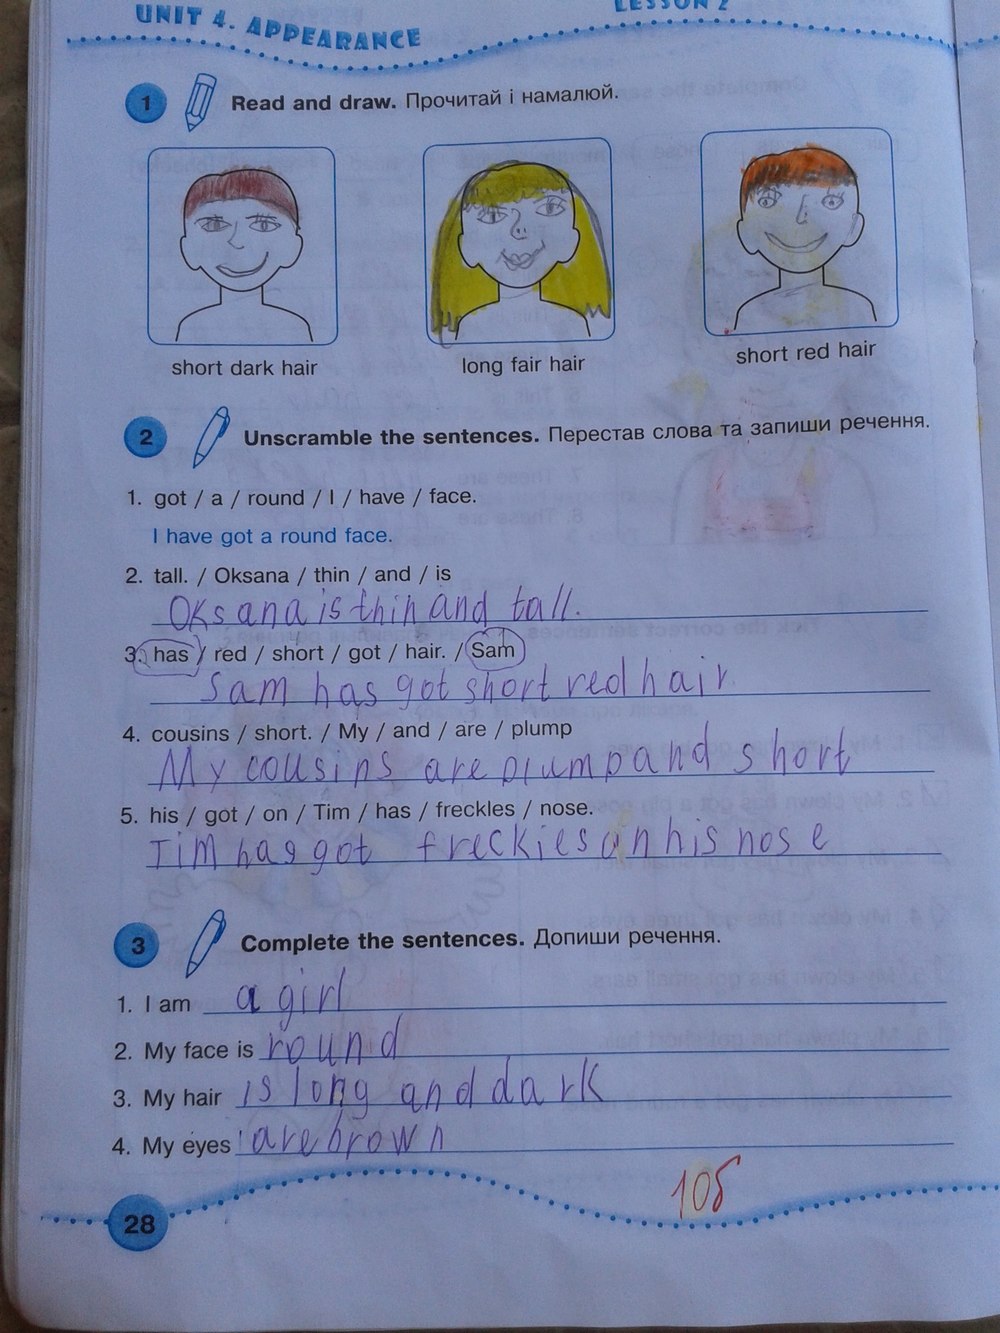 UNIT 4. APPEARANCE
LESSON 2
1 Read and draw. Прочитай і намалюй.
short dark hair
long fair hair
short red hair
2 Unscramble the sentences. Перестав слова та запиши речення.
1. got / a / round / I / have / face.
I have got a round face.
2. tall. / Oksana / thin / and / is
Oksana is thin and tall.
3. has / red / short / got / hair. / Sam
Sam has got short red hair
4. cousins / short. / My / and / are / plump
My cousins are plump and short
5. his / got / on / Tim / has / freckles / nose.
Tim has got freckies on his nose
3 Complete the sentences. Допиши речення.
1. I am a girl
2. My face is round
3. My hair is long and dark
4. My eyes are brown
10б
28